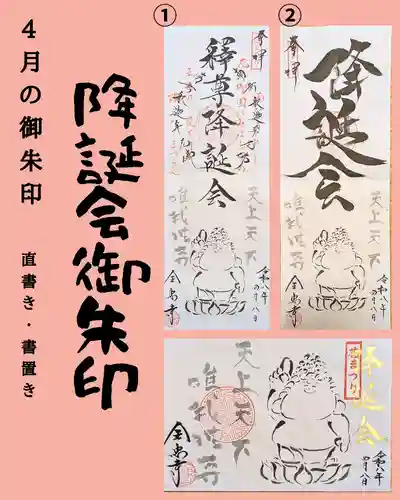 4月の御朱印
直書き・書置き
降誕会御朱印
①
奉拝
釋尊降誕会
天上天下
唯我独尊
令和八年
四月八日
②
奉拝
降誕会
天上天下
唯我独尊
令和八年
四月八日
花まつり
降誕会
天上天下
唯我独尊
令和八年
四月八日